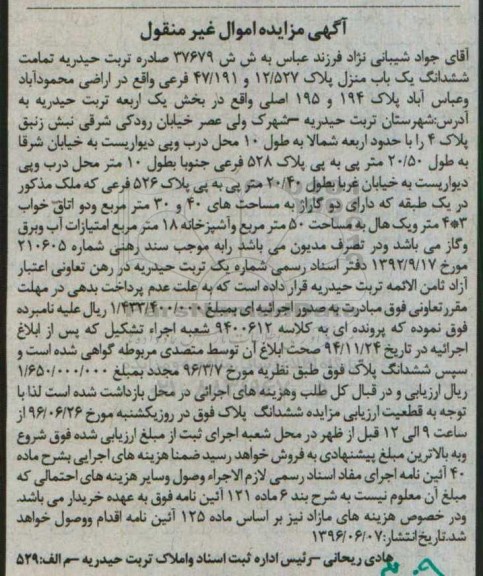 آگهی مزایده اموال غیر منقول
آقای جواد شیبانی نژاد فرزند عباس به ش ش ۳۷۶۷۹ صادره تربت حیدریه تمامت
ششدانگ یک باب منزل پلاک ۱۲/۵۲۷ و ۴۷/۱۹۱ فرعی واقع در اراضی محمودآباد
وعباس آباد پلاک ۱۹۴ و ۱۹۵ اصلی واقع در بخش یک اربعه تربت حیدریه به
آدرس:شهرستان تربت حیدریه –شهرک ولی عصر خیابان رودکی شرقی نبش زنبق
پلاک ۴ را با حدود اربعه شمالا به طول ۱۰ محل درب وپی دیواریست به خیابان شرقا
به طول ۲۰/۵۰ متر پی به پی پلاک ۵۲۸ فرعی جنوبا بطول ۱۰ متر محل درب وپی
دیواریست به خیابان غربا بطول ۲۰/۴۰ متر پی به پی پلاک ۵۲۶ فرعی که ملک مذکور
در یک طبقه که دارای دو گاراژ به مساحت های ۴۰ و ۳۰ متر مربع ودو اتاق خواب
۳*۴ متر ویک هال به مساحت ۵۰ متر مربع وآشپزخانه ۱۸ متر مربع امتیازات آب وبرق
وگاز می باشد ودر تصرف مدیون می باشد رابه موجب سند رهنی شماره ۲۱۰۶۰۵
مورخ ۱۳۹۲/۹/۱۷ دفتر اسناد رسمی شماره یک تربت حیدریه در رهن تعاونی اعتبار
آزاد ثامن الائمه تربت حیدریه قرار داده است که به علت عدم پرداخت بدهی در مهلت
مقرر تعاونی فوق مبادرت به صدور اجرائیه ای بمبلغ ۱/۴۳۳/۴۰۰/۸۰۰ ریال علیه نامبرده
فوق نموده که پرونده ای به کلاسه ۹۴۰۰۶۱۲ شعبه اجراء تشکیل که پس از ابلاغ
اجرائیه در تاریخ ۹۴/۱۱/۲۴ صحت ابلاغ آن توسط متصدی مربوطه گواهی شده است و
سپس ششدانگ پلاک فوق طبق نظریه مورخ ۹۶/۳/۷ مجدد بمبلغ ۱/۶۵۰/۰۰۰/۰۰۰
ریال ارزیابی و در قبال کل طلب وهزینه های اجرائی در محل بازداشت شده است لذا با
توجه به قطعیت ارزیابی مزایده ششدانگ پلاک فوق در روزیکشنبه مورخ ۹۶/۰۶/۲۶ از
ساعت ۹ الی ۱۲ قبل از ظهر در محل شعبه اجرای ثبت از مبلغ ارزیابی شده فوق شروع
وبه بالاترین مبلغ پیشنهادی به فروش خواهد رسید ضمنا هزینه های اجرایی بشرح ماده
۴۰ آئین نامه اجرای مفاد اسناد رسمی لازم الاجراء وصول وسایر هزینه های احتمالی که
مبلغ آن معلوم نیست به شرح بند ۶ ماده ۱۲۱ آئین نامه فوق به عهده خریدار می باشد.
ودر خصوص هزینه های مازاد نیز بر اساس ماده ۱۲۵ آئین نامه اقدام ووصول خواهد
شد.تاریخ انتشار:۱۳۹۶/۰۶/۰۷
هادی ریحانی –رئیس اداره ثبت اسناد واملاک تربت حیدریه –م الف:۵۲۹